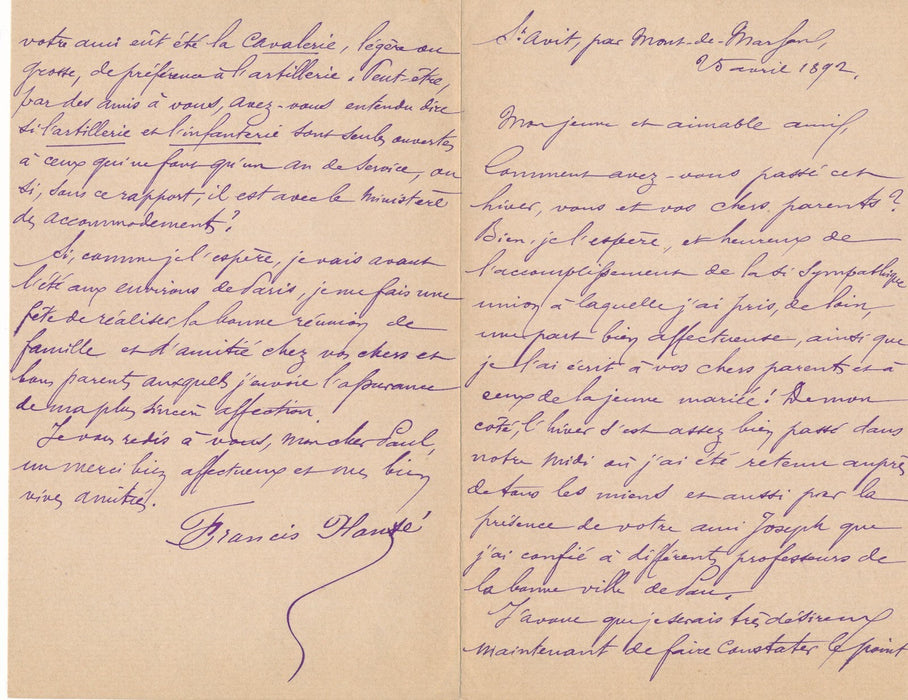 St Avit, par Mont-de-Marsan,
25 avril 1892.
Mon jeune et aimable ami,
Comment avez-vous passé cet
hiver, vous et vos chers parents ?
Bien, je l'espère, et heureux de
l'accomplissement de la si sympathique
union à laquelle j'ai pris, de loin,
une part bien affectueuse, ainsi que
je l'ai écrit à vos chers parents et à
ceux de la jeune mariée ! De mon
côté, l'hiver s'est assez bien passé dans
notre midi où j'ai été retenu auprès
de tous les miens et aussi par la
présence de votre ami Joseph que
j'ai confié à différents professeurs de
la bonne ville de Pau.
J'avoue que je serais très désireux
maintenant de faire constater le point
votre ami eût été la cavalerie, légère ou
grosse, de préférence à l'artillerie. Peut-être,
par des amis à vous, avez-vous entendu dire
si l'artillerie et l'infanterie sont seules ouvertes
à ceux qui ne font qu'un an de service, ou
si, sous ce rapport, il est avec le ministère
des accommodements ?
Si, comme je l'espère, je vais avant
l'été aux environs de Paris, je me fais une
fête de réaliser la bonne réunion de
famille et d'amitié chez vos chers et
bons parents auxquels j'envoie l'assurance
de ma plus sincère affection.
Je vous redis à vous, mon cher Paul,
un merci bien affectueux et mes bien
vives amitiés.
Francis Planté